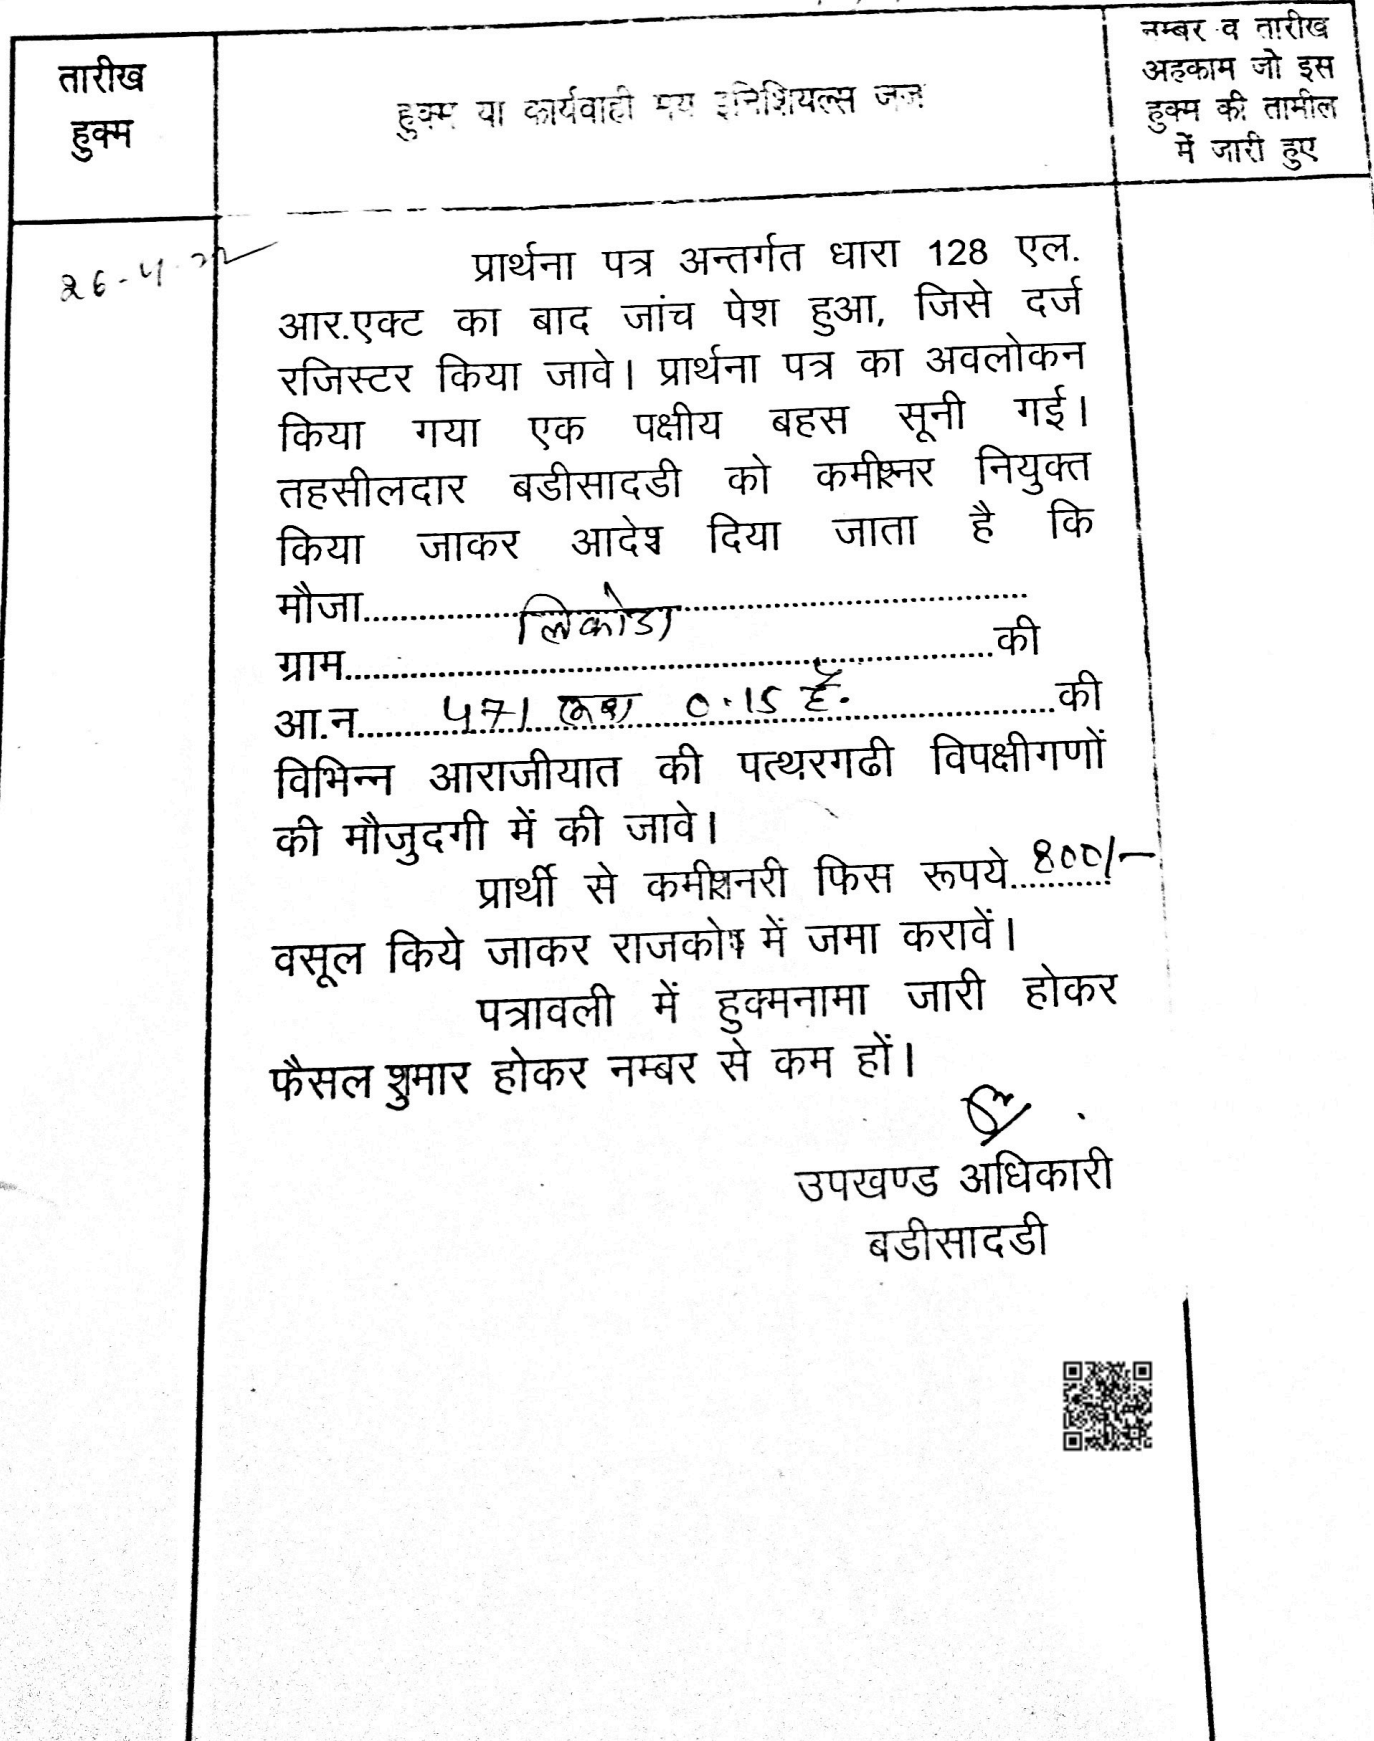 तारीख
हुक्म
हुक्म या कार्यवाही मय इनिशियल्स जज
नम्बर व तारीख
अहकाम जो इस
हुक्म की तामील
में जारी हुए
26-4-22
प्रार्थना पत्र अन्तर्गत धारा 128 एल.
आर.एक्ट का बाद जांच पेश हुआ, जिसे दर्ज
रजिस्टर किया जावे। प्रार्थना पत्र का अवलोकन
किया गया एक पक्षीय बहस सूनी गई।
तहसीलदार बडीसादडी को कमीश्नर नियुक्त
किया जाकर आदेश दिया जाता है कि
मौजा.......................................................
लिकोडा
ग्राम.......................................................की
आ.न.....471 रकबा 0.15 है...................की
विभिन्न आराजीयात की पत्थरगढी विपक्षीगणों
की मौजुदगी में की जावे।
प्रार्थी से कमीशनरी फिस रूपये..800/-
वसूल किये जाकर राजकोष में जमा करावें।
पत्रावली में हुक्मनामा जारी होकर
फैसल शुमार होकर नम्बर से कम हों।
उपखण्ड अधिकारी
बडीसादडी